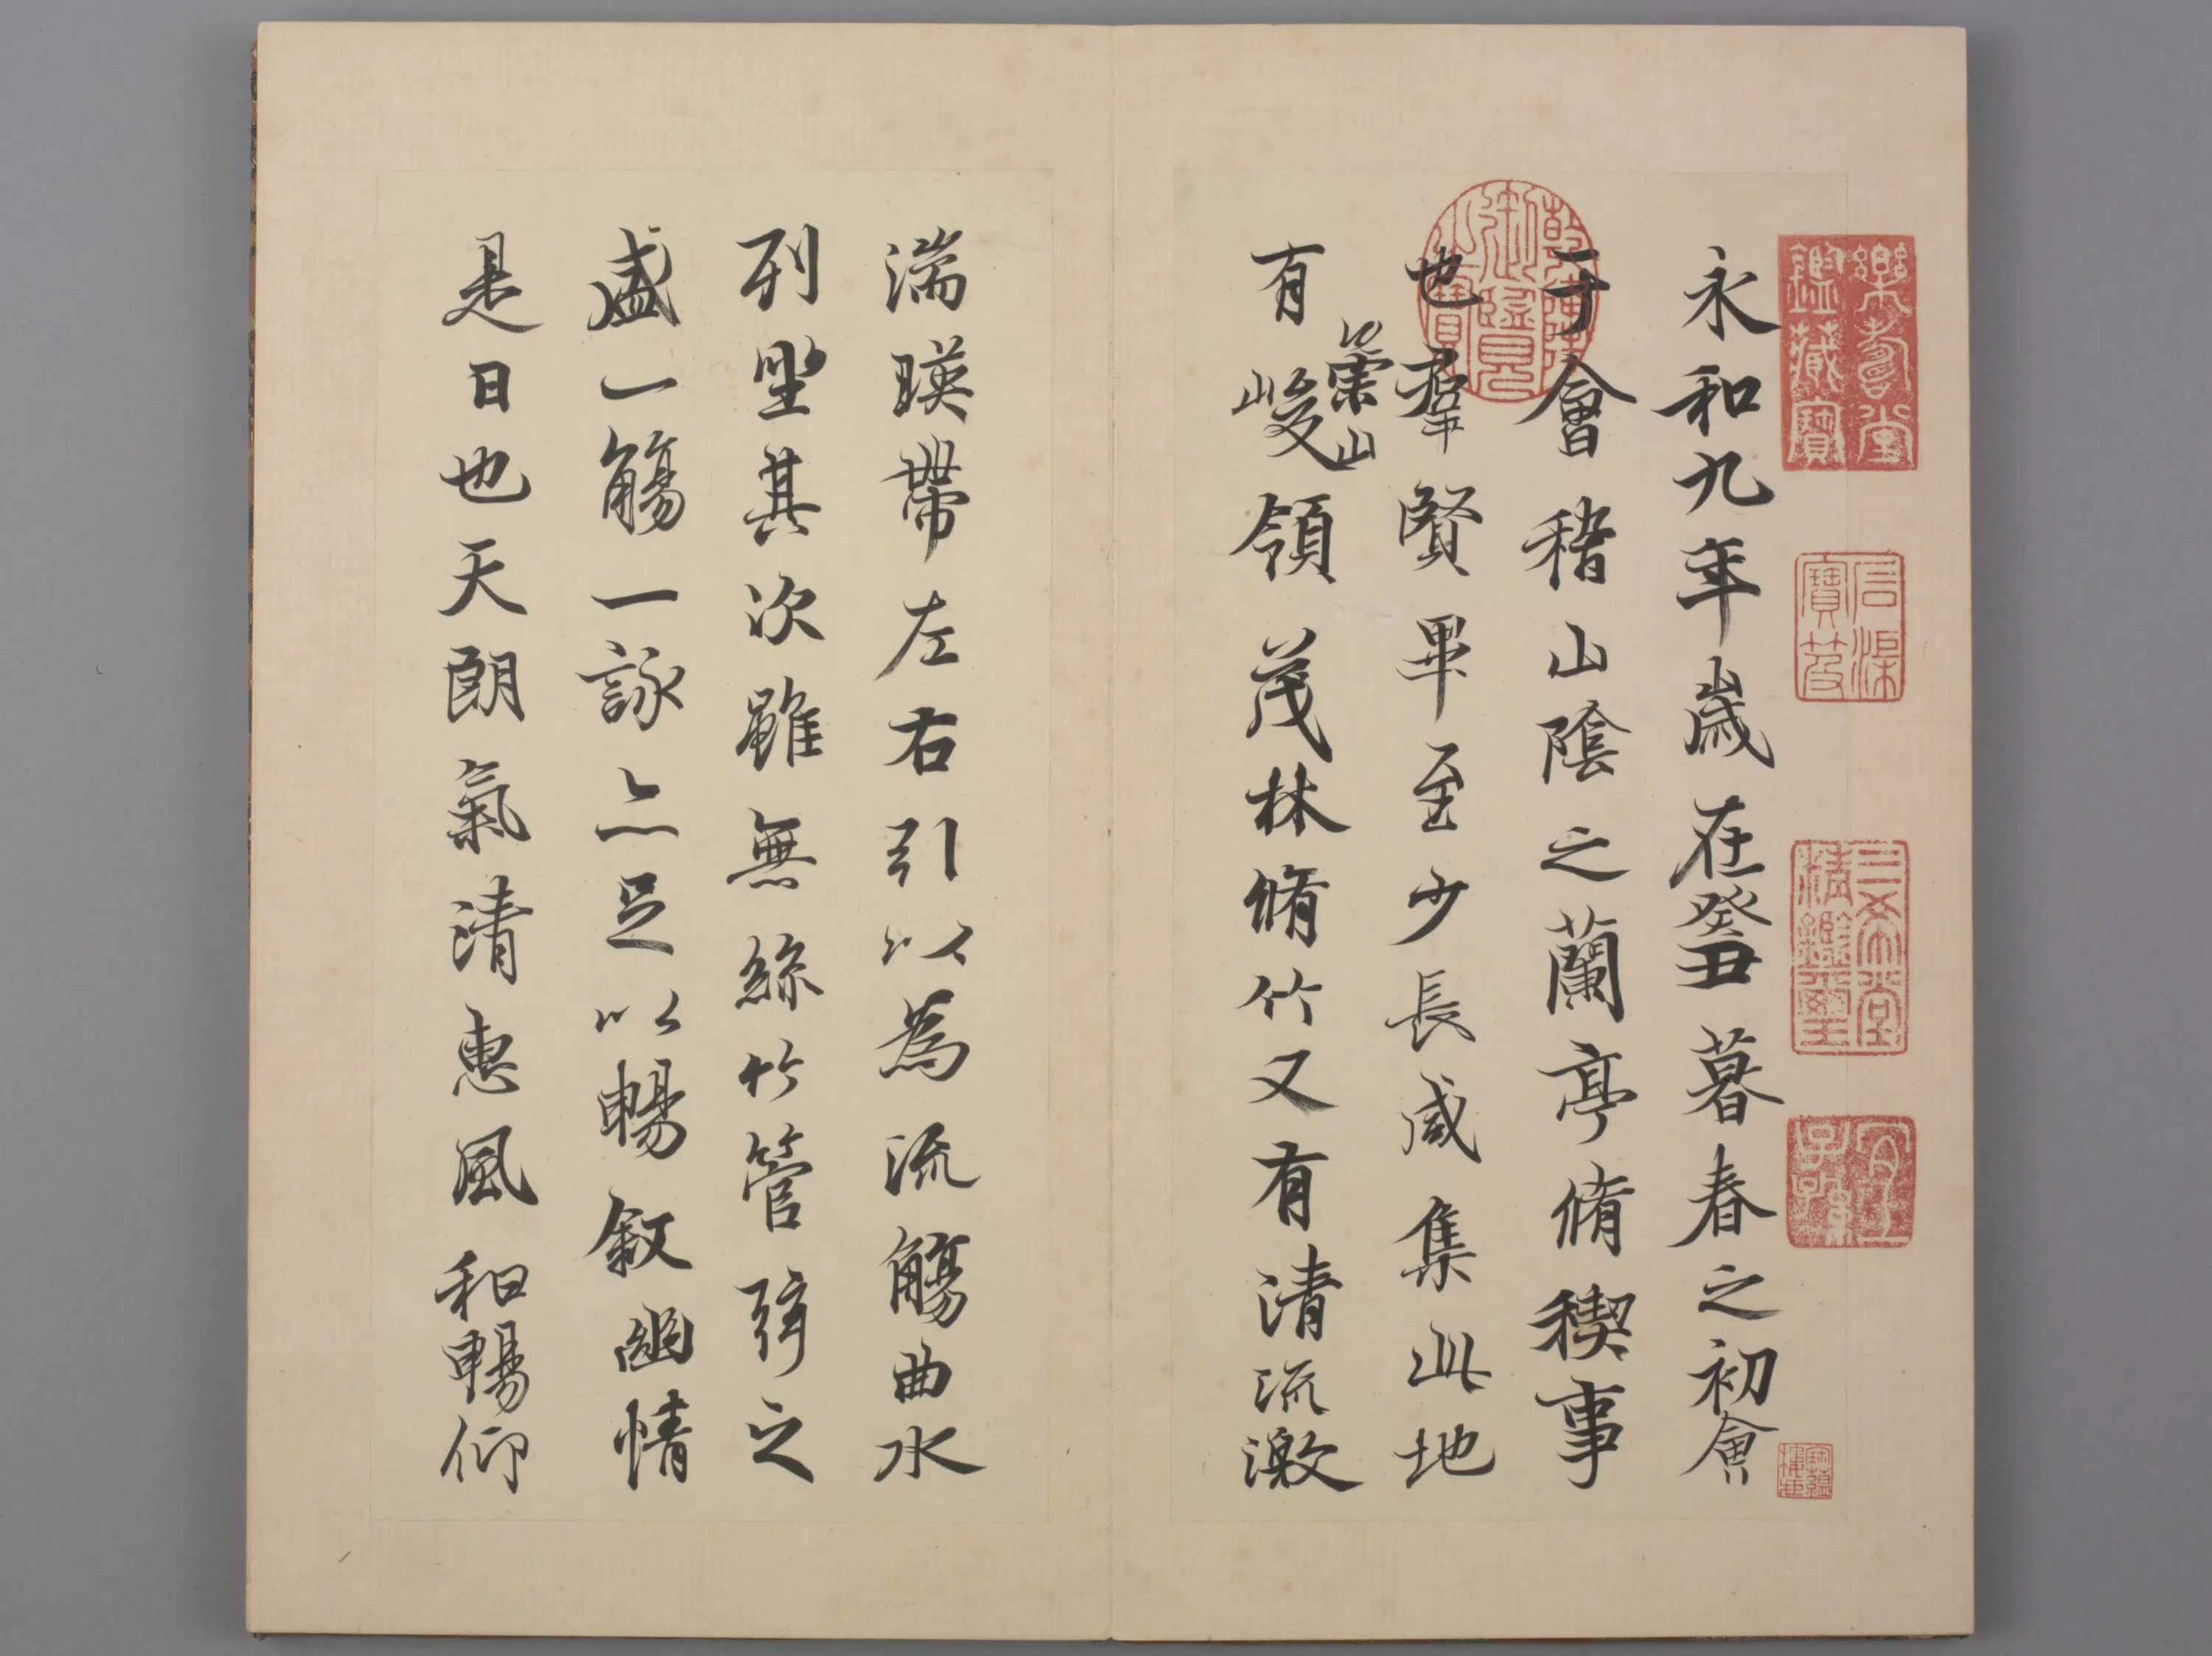 永和九年歲在癸丑暮春之初會
于會稽山陰之蘭亭脩稧事
也羣賢畢至少長咸集此地
崇山
有峻領茂林脩竹又有清流激
湍暎帶左右引以為流觴曲水
列坐其次雖無絲竹管弦之
盛一觴一詠亦足以暢敘幽情
是日也天朗氣清惠風和暢仰
樂壽堂鑑藏寶
石渠寶笈
三希堂精鑑璽
宜子孫
乾隆御覽之寶